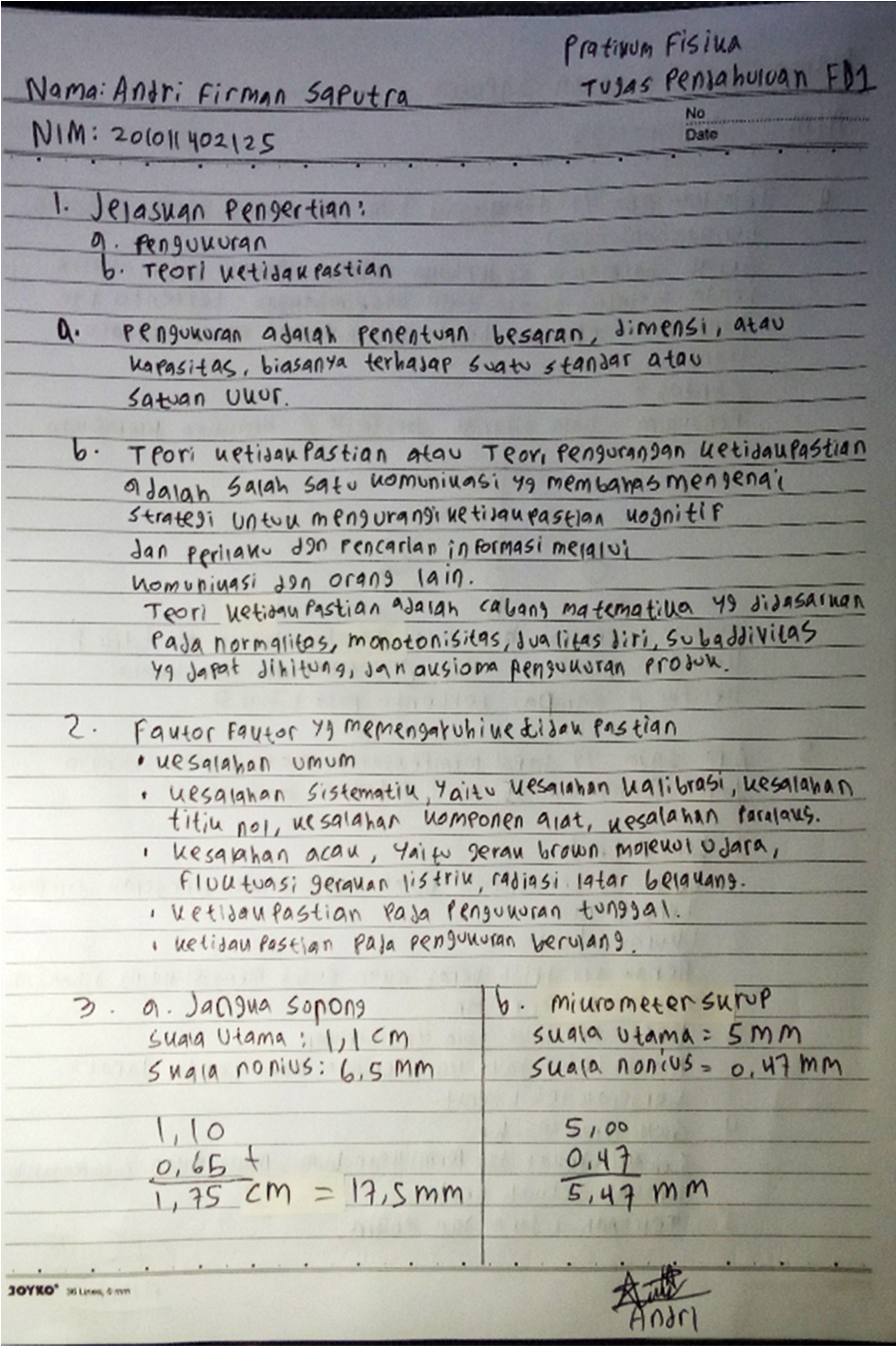 Pratikum Fisika
Tugas Pendahuluan FD1
Nama: Andri Firman Saputra
NIM: 201011402125
No
Date
1. Jelaskan Pengertian:
a. Pengukuran
b. Teori ketidakpastian
a. Pengukuran adalah penentuan besaran, dimensi, atau
kapasitas, biasanya terhadap suatu standar atau
satuan ukur.
b. Teori ketidakpastian atau Teori pengurangan ketidakpastian
adalah salah satu komunikasi yg membahas mengenai
strategi untuk mengurangi ketidakpastian kognitif
dan perilaku dgn pencarian informasi melalui
komunikasi dgn orang lain.
Teori ketidakpastian adalah cabang matematika yg didasarkan
pada normalitas, monotonisitas, dualitas diri, subaddivitas
yg dapat dihitung, dan aksioma pengukuran produk.
2. Faktor Faktor yg memengaruhi ketidak pastian
• kesalahan umum
• kesalahan sistematik, yaitu kesalahan kalibrasi, kesalahan
titik nol, kesalahan komponen alat, kesalahan paralaks.
• kesalahan acak, yaitu gerak brown molekul udara,
fluktuasi gerakan listrik, radiasi latar belakang.
• ketidakpastian pada pengukuran tunggal.
• ketidak pastian pada pengukuran berulang.
3. a. Jangka Sopong
skala utama : 1,1 cm
skala nonius : 6,5 mm
1,10
0,65 +
1,75 cm = 17,5 mm
b. mikrometer skrup
skala utama = 5 mm
skala nonius = 0,47 mm
5,00
0,47
5,47 mm
JOYKO® 36 Lines, 6 mm
Andri